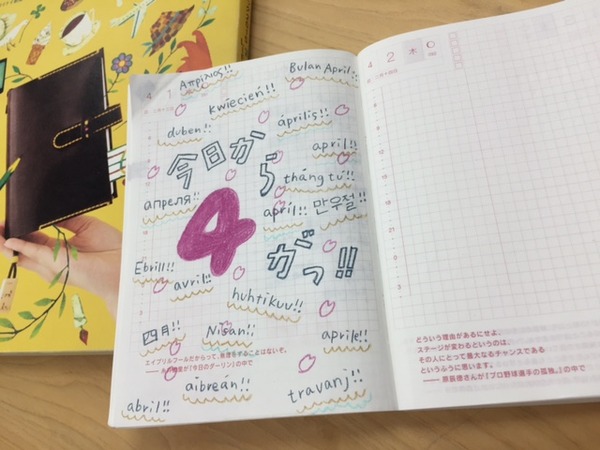 4 1
Απρίλιος!!
Bulan April!!
kwiecień!!
duben!!
április!!
april!!
今日から
tháng tư!!
апреля!!
april!!
만우절!!
4
がっ!!
Ebrill!!
avril!!
huhtikuu!!
四月!!
Nisan!!
aprile!!
エイプリルフールだからって、無理をすることはないぞ。
aibreán!!
travanj!!
abril!!
4 2 木
どういう理由があるにせよ、
ステージが変わるというのは、
その人にとって最大なるチャンスである
というふうに思います。
──原辰徳さんが『プロ野球選手の孤独。』の中で